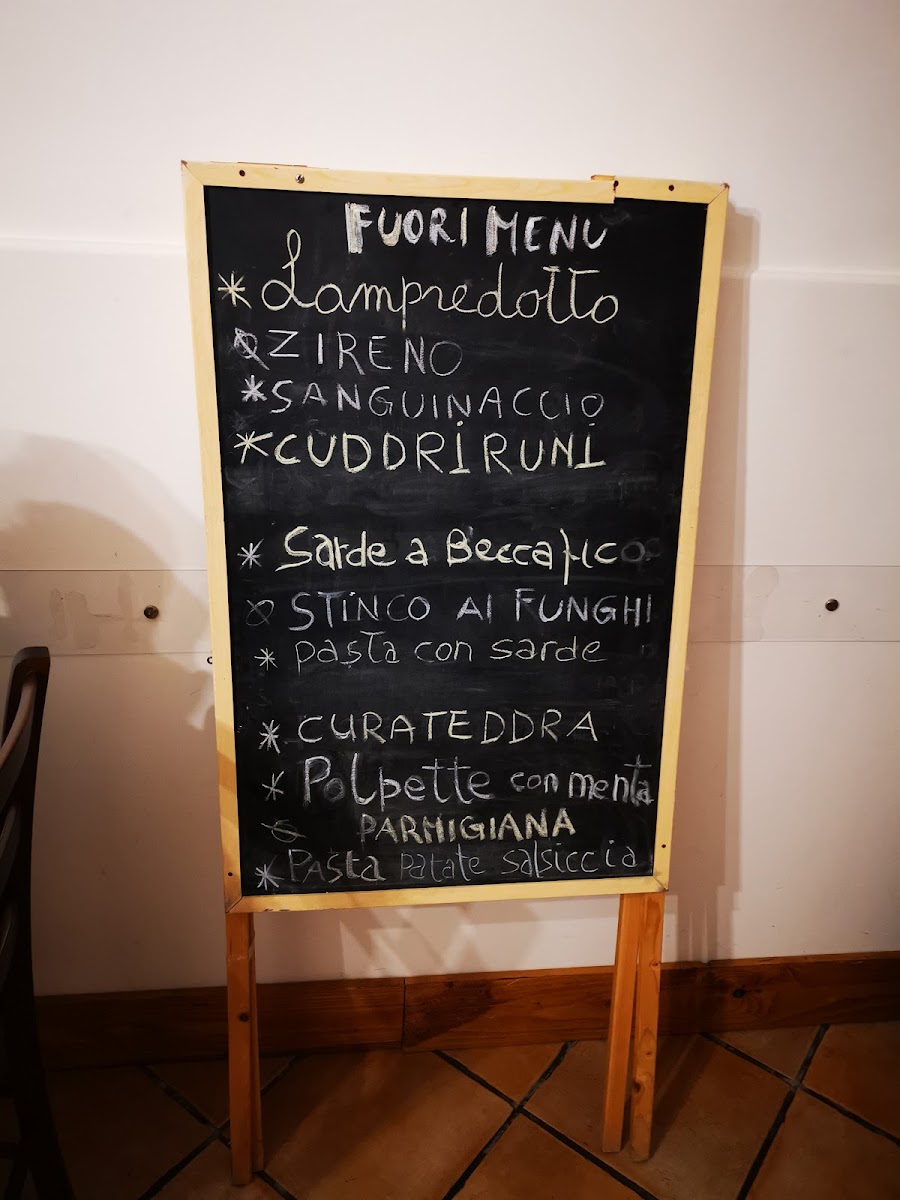 FUORI MENU
* Lampredotto
ZIRENO
* SANGUINACCIO
* CUDDRIRUNI
* Sarde a Beccafico
STINCO AI FUNGHI
* pasta con sarde
* CURATEDDRA
* Polpette con menta
PARMIGIANA
* Pasta patate salsiccia